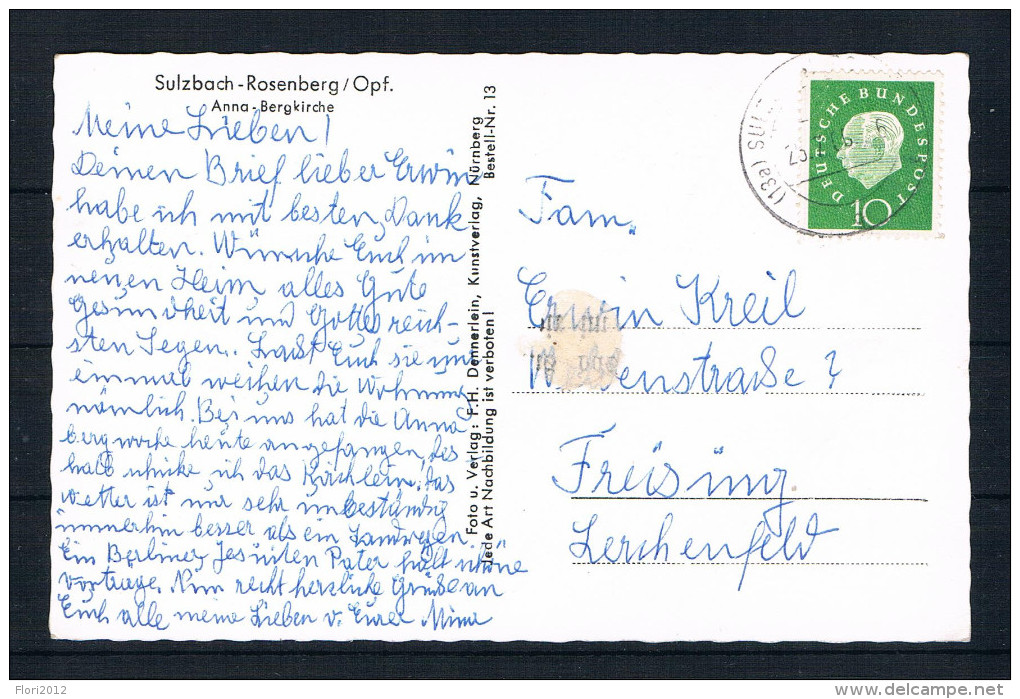 Sulzbach-Rosenberg/Opf.
Anna-Bergkirche
Meine Lieben!
Deinen Brief lieber Erwin
habe ich mit besten Dank
erhalten. Wünsche Euch im
neuen Heim alles Gute
Gesundheit und Gottes reich-
sten Segen. Laßt Euch sie nur
einmal weihen die Wohnung
nämlich. Bei uns hat die Anna
bergwoche heute angefangen, des
halb schicke ich das Kirchlein, das
Wetter ist nur sehr unbeständig
immerhin besser als ein Landregen.
Ein Berliner Jesuiten Pater hält schöne
Vorträge. Nun recht herzliche Grüße an
Euch alle meine Lieben v. Eurer Mina
Foto u. Verlag: F. H. Dennerlein, Kunstverlag, Nürnberg
Jede Art Nachbildung ist verboten! Bestell-Nr. 13
DEUTSCHE BUNDESPOST
10
(13a) SUL
Fam.
Erwin Kreil
Freising
Lerchenfeld
Flori2012
delcampe.net